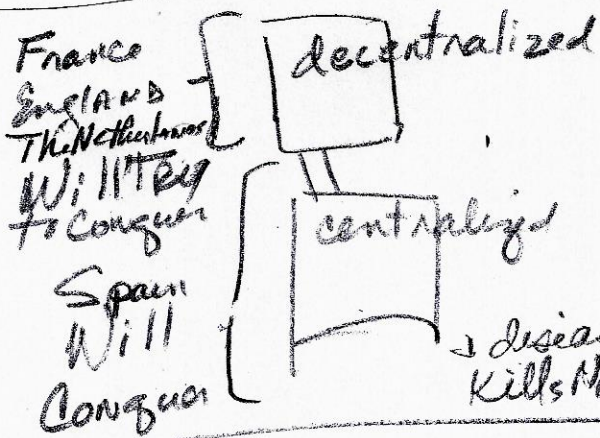 France
England
The Netherlands
Will Try
to Conquer
decentralized
Spain
Will
Conquer
centralized
Kills